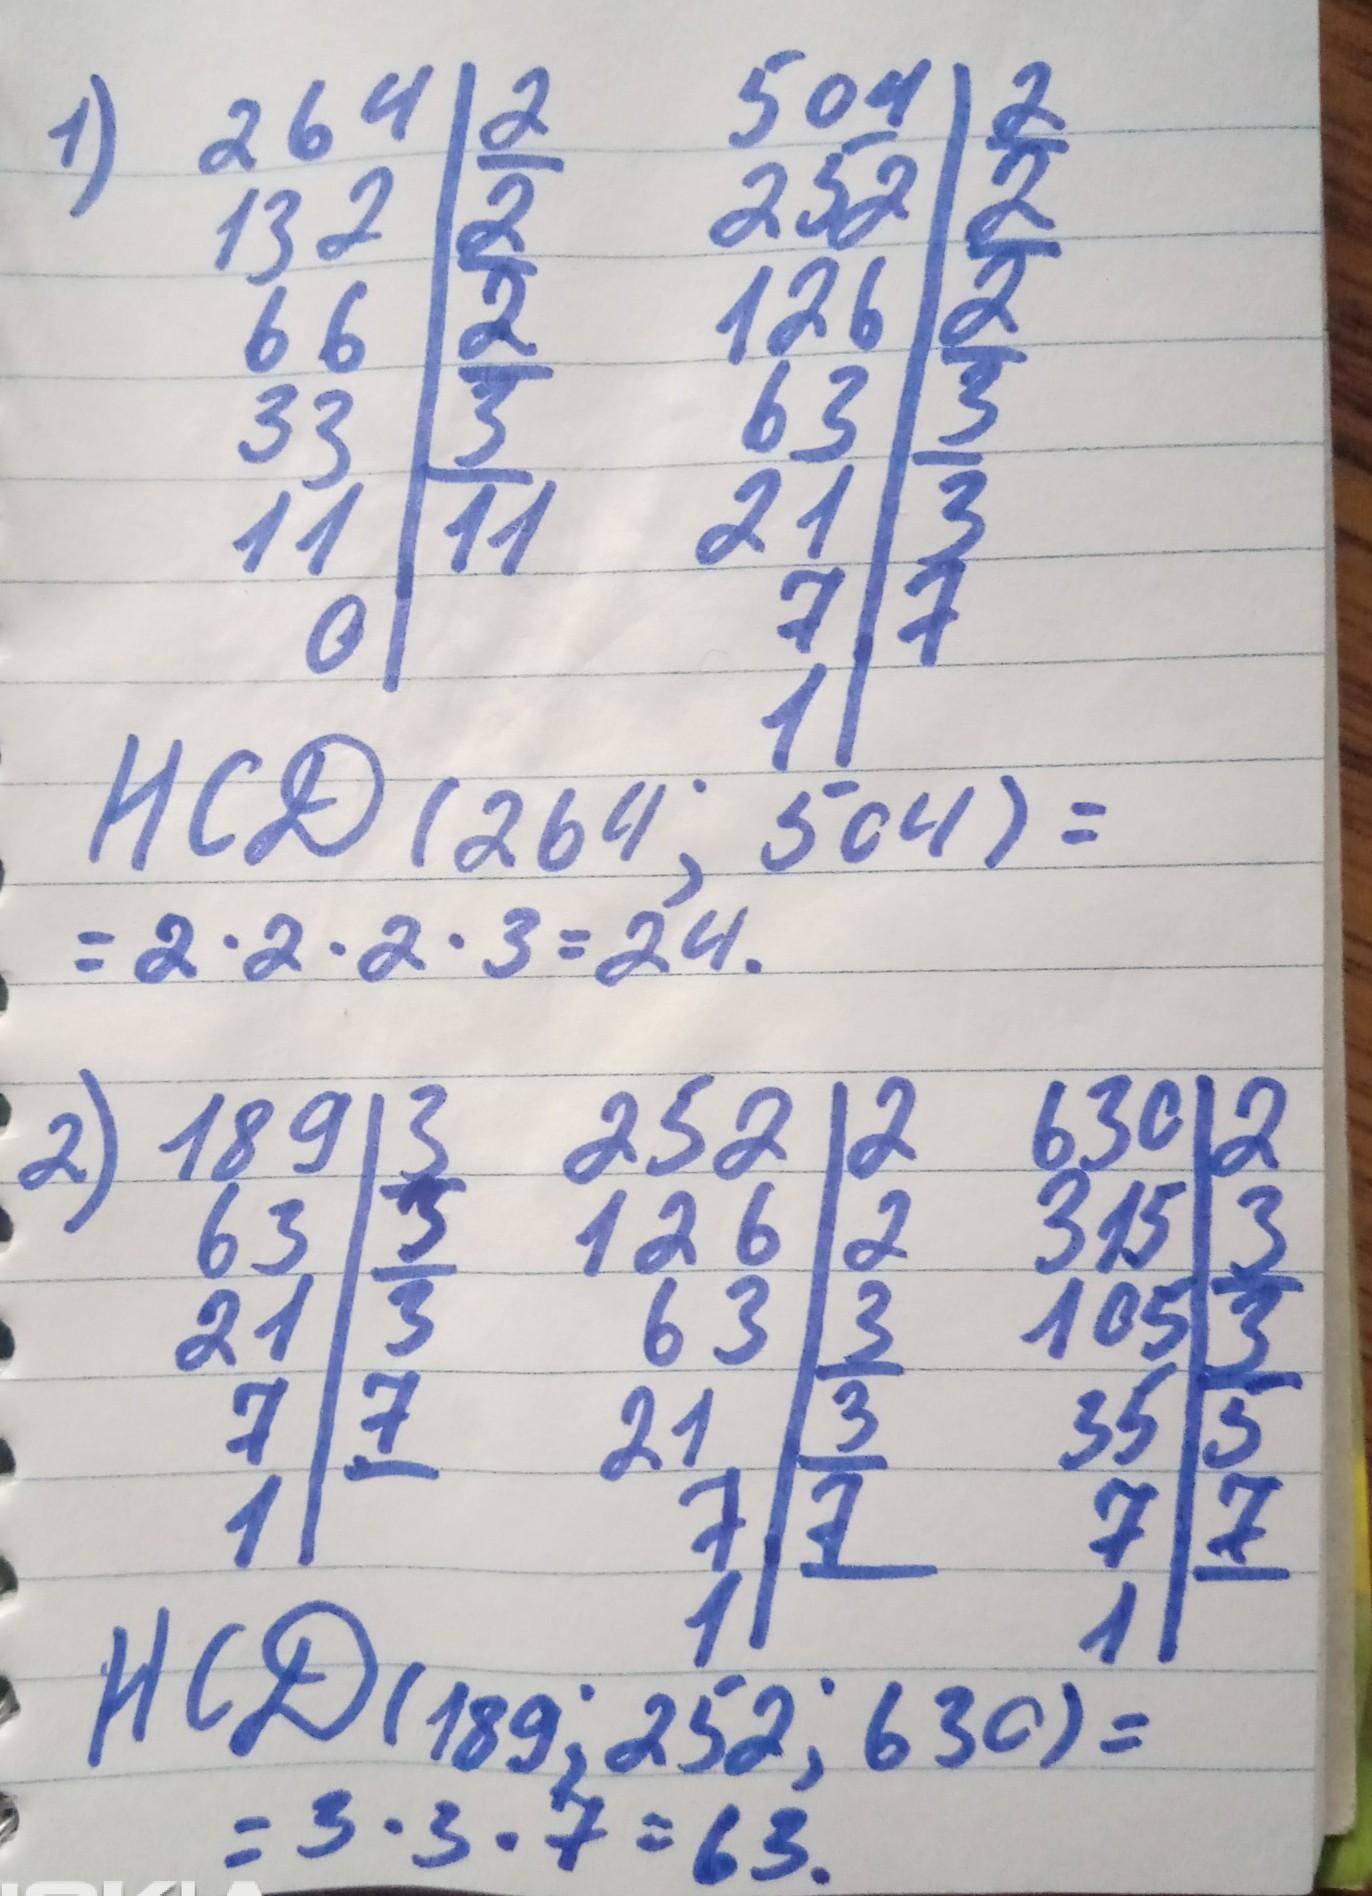 1) 264 | 2 504 | 2
132 | 2 252 | 2
66 | 2 126 | 2
33 | 3 63 | 3
11 | 11 21 | 3
0 | 7 | 7
1 |
НСД (264; 504) =
= 2 · 2 · 2 · 3 = 24.
2) 189 | 3 252 | 2 630 | 2
63 | 3 126 | 2 315 | 3
21 | 3 63 | 3 105 | 3
7 | 7 21 | 3 35 | 5
1 | 7 | 7 7 | 7
1 | 1 |
НСД (189; 252; 630) =
= 3 · 3 · 7 = 63.